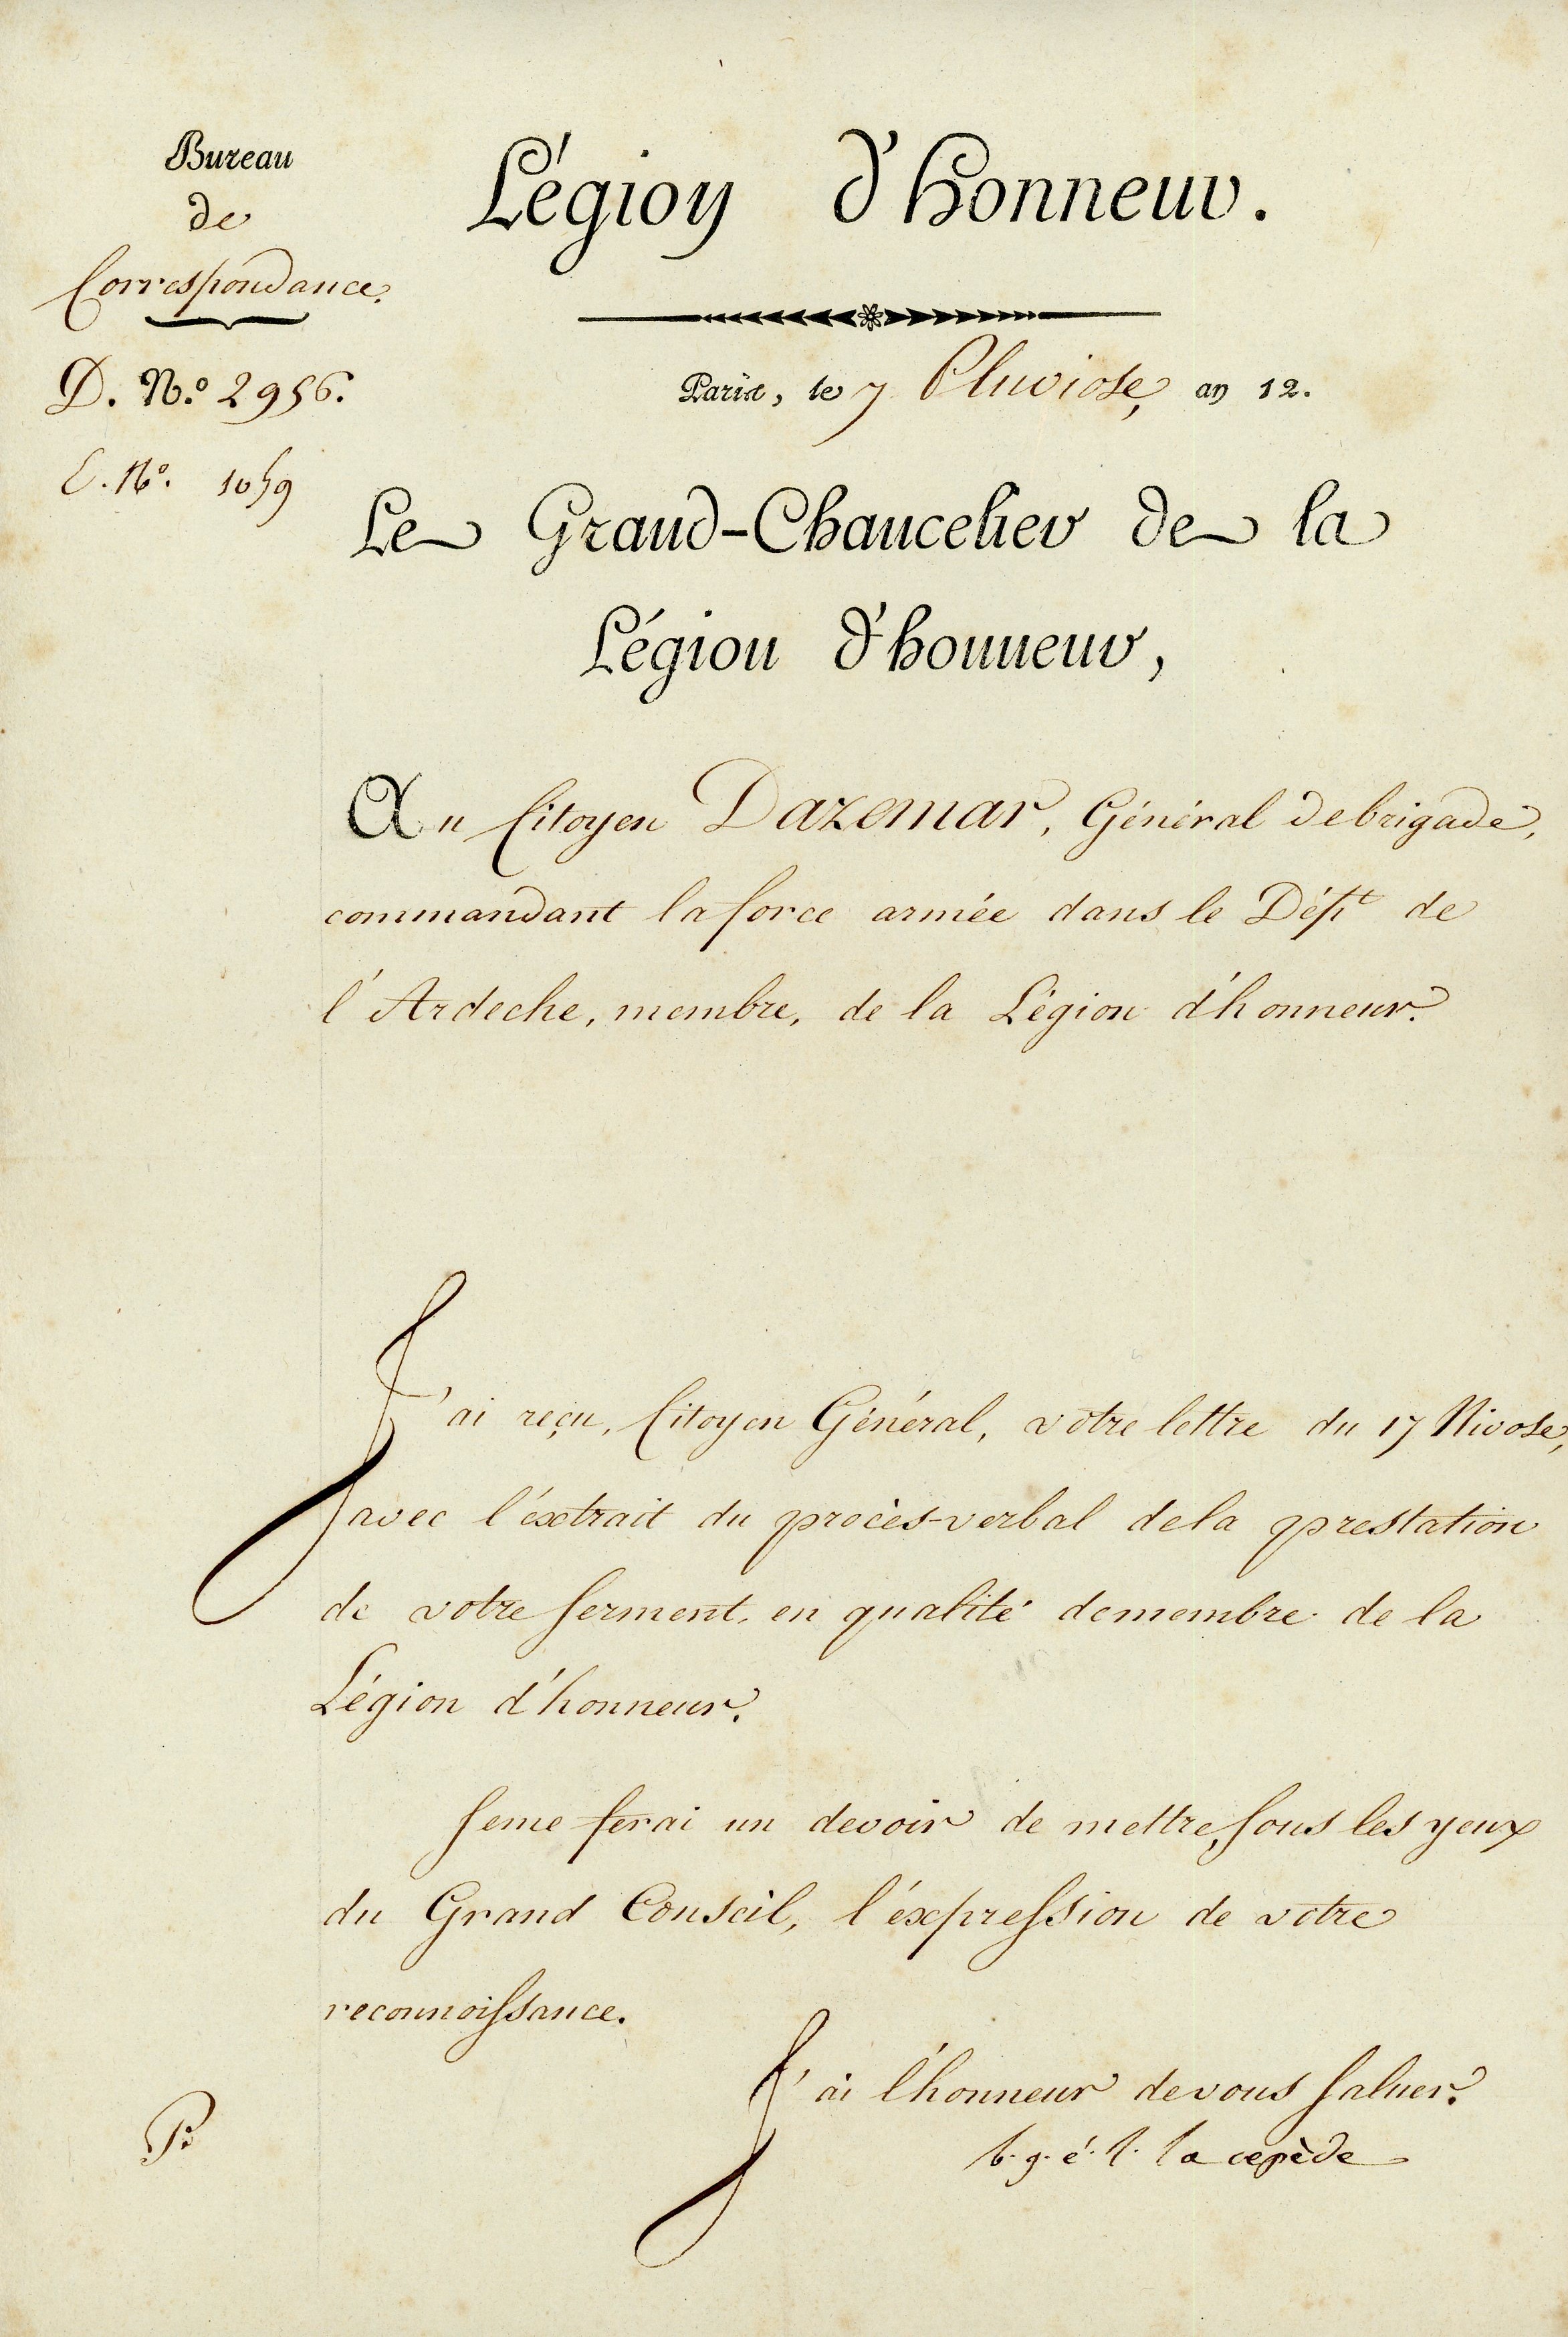 Bureau
de
Correspondance.
D. N.º 2956.
E. Nº. 1059
Légion d'honneur.
Paris, le 7 Pluviose, an 12.
Le Grand-Chancelier de la
Légion d'honneur,
Au Citoyen Dazemar, Général de brigade,
commandant la force armée dans le Dépt de
l'Ardeche, membre, de la Légion d'honneur.
J'ai reçu, Citoyen Général, votre lettre du 17 Nivose,
avec l'éxtrait du procès-verbal de la prestation
de votre serment, en qualité de membre de la
Légion d'honneur.
Je me ferai un devoir de mettre, sous les yeux
du Grand Conseil, l'éxpression de votre
reconnoissance.
J'ai l'honneur de vous saluer.
b. g. é. l. la cepède
P.